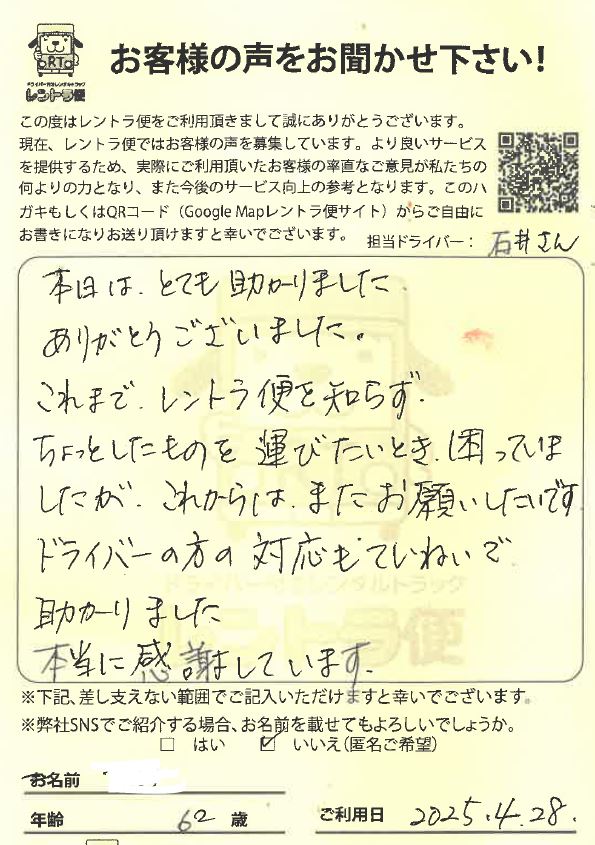 お客様の声をお聞かせ下さい!
RT
ドライバー付きレンタルトラック
レントラ便
この度はレントラ便をご利用頂きまして誠にありがとうございます。
現在、レントラ便ではお客様の声を募集しています。より良いサービス
を提供するため、実際にご利用頂いたお客様の率直なご意見が私たちの
何よりの力となり、また今後のサービス向上の参考となります。このハ
ガキもしくはQRコード（Google Mapレントラ便サイト）からご自由に
お書きになりお送り頂けますと幸いでございます。
担当ドライバー： 石井さん
本日は、とても助かりました.
ありがとうございました。
これまで、レントラ便を知らず、
ちょっとしたものを運びたいとき、困っていま
したが、これからは、またお願いしたいです
ドライバーの方の対応もていねいで
助かりました
本当に感謝しています.
※下記、差し支えない範囲でご記入いただけますと幸いでございます。
※弊社SNSでご紹介する場合、お名前を載せてもよろしいでしょうか。
□ はい ☑ いいえ(匿名ご希望)
お名前
年齢 62 歳
ご利用日 2025.4.28.